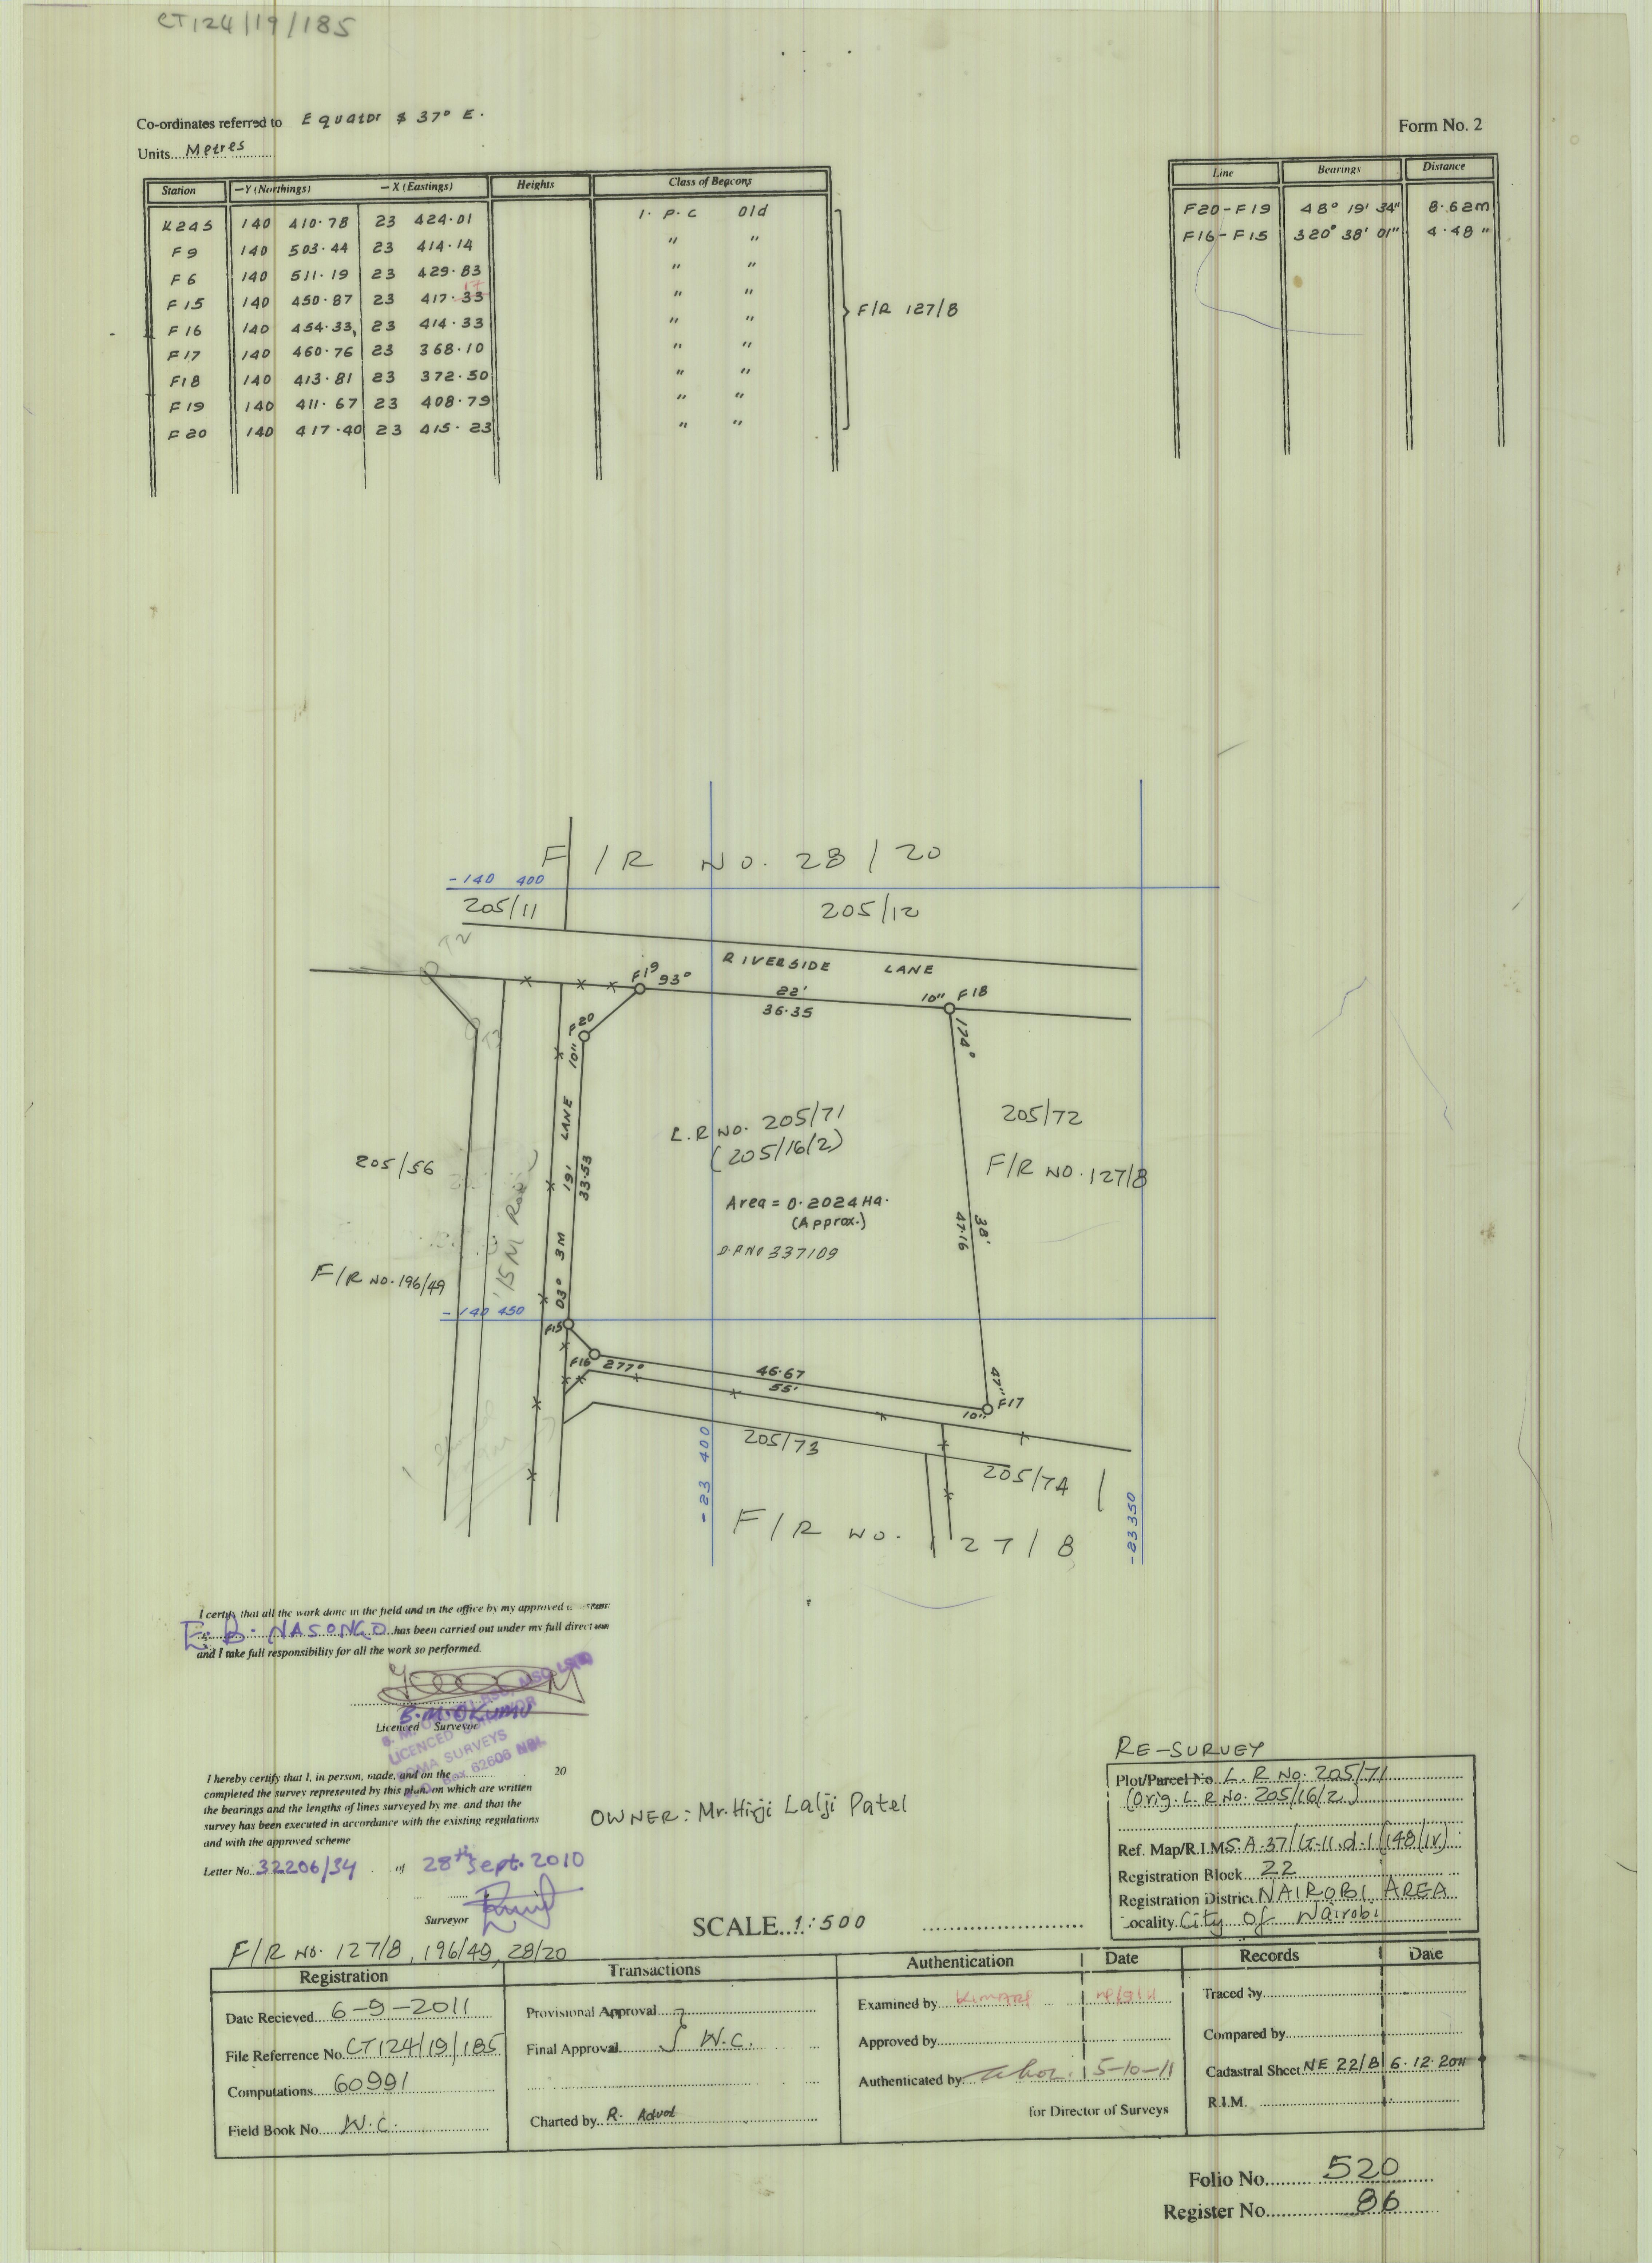 CT124/19/185
Co-ordinates referred to Equator $ 37° E.
Form No. 2
Units...Metres
Station —Y (Northings) — X (Eastings) Heights Class of Beacons
K245 140 410.78 23 424.01 I.P.C Old
F9 140 503.44 23 414.14 " "
F6 140 511.19 23 429.83 " "
F15 140 450.87 23 417.33 " "
17
F16 140 454.33 23 414.33 " "
F17 140 460.76 23 368.10 " "
F18 140 413.81 23 372.50 " "
F19 140 411.67 23 408.79 " "
F20 140 417.40 23 415.23 " "
F/R 127/8
Line Bearings Distance
F20-F19 48° 19' 34" 8.62m
F16-F15 320° 38' 01" 4.48 "
F/R No. 28/20
-140 400
205/11
205/12
T2
RIVERSIDE LANE
F19 93°
22'
36.35
10" F18
F20
10"
T3
174°
LANE
19'
33.53
3M
03°
L.R No. 205/71
(205/16/2)
205/72
205/56
F/R No. 127/8
Area = 0.2024 Ha.
(Approx.)
D.P No 337109
38'
47.16
15M Road
F/R No. 196/49
-140 450
F15
F16 277°
46.67
55'
47"
10" F17
205/73
205/74
-23 400
-23 350
F/R No. 127/8
I certify that all the work done in the field and in the office by my approved
E. B. NASONGO has been carried out under my full direct
and I take full responsibility for all the work so performed.
B.M. OKUMU
Licenced Surveyor
LICENCED SURVEYOR
SURVEYS
Box 62606 NBI.
I hereby certify that I, in person, made, and on the 20
completed the survey represented by this plan, on which are written
the bearings and the lengths of lines surveyed by me and that the
survey has been executed in accordance with the existing regulations
and with the approved scheme
Letter No. 32206/34 of 28th Sept. 2010
Surveyor
OWNER: Mr. Hirji Lalji Patel
SCALE...1:500
RE-SURVEY
Plot/Parcel No. L.R No. 205/71
(Orig. L.R No. 205/16/2)
Ref. Map/R.I.M S.A.37/G-11.d-1 (148/IV)
Registration Block 22
Registration District NAIROBI AREA
Locality City of Nairobi
F/R No. 127/8, 196/49, 28/20
Registration
Date Recieved 6-9-2011
File Referrence No. CT124/19/185
Computations 60991
Field Book No. W.C.
Transactions
Provisional Approval
Final Approval W.C.
Charted by R.
Authentication Date
Examined by KIMANI
Approved by
Authenticated by 5-10-11
for Director of Surveys
Records Date
Traced by
Compared by
Cadastral Sheet NE 22/B 6.12.2011
R.I.M.
Folio No. 520
Register No. 86